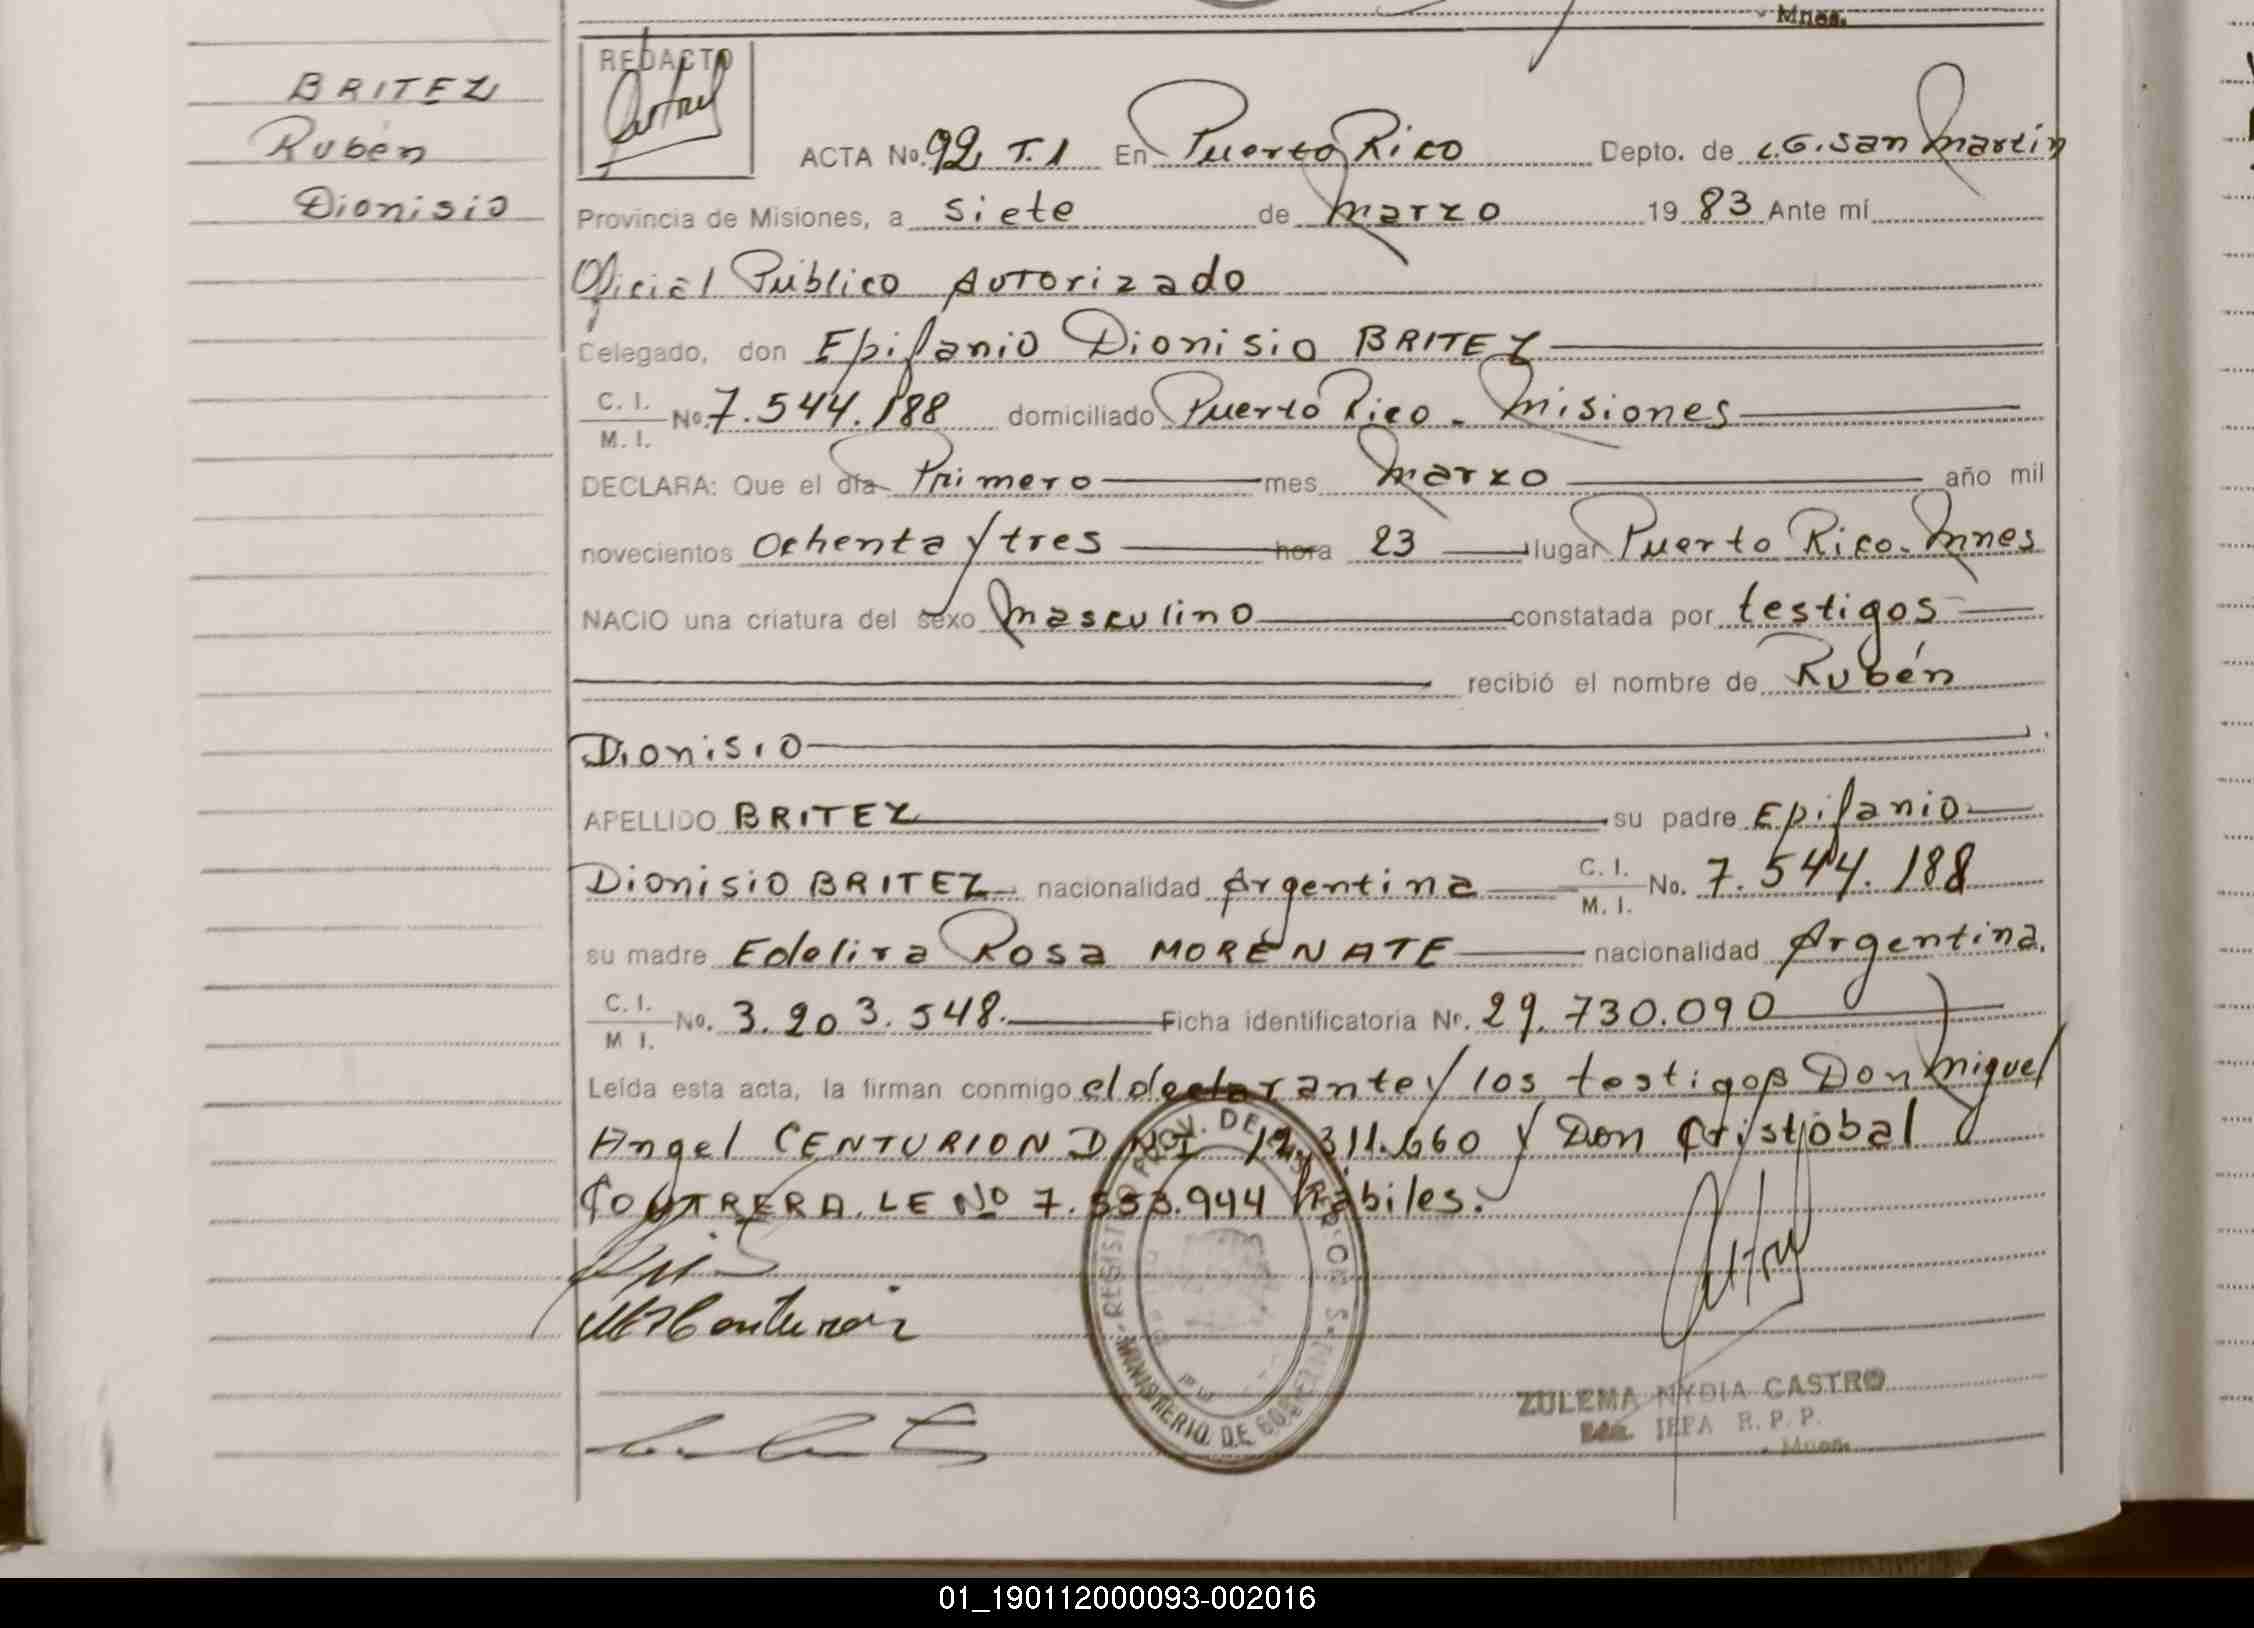 Mnes.
BRITEZ
Rubén
Dionisio
REDACTO
ACTA No. 92 T.1 En Puerto Rico Depto. de L.G. San Martín
Provincia de Misiones, a siete de Marzo 19 83 Ante mí
Oficial Público Autorizado
Delegado, don Epifanio Dionisio BRITEZ
C. I.
M. I. No. 7.544.188 domiciliado Puerto Rico - Misiones
DECLARA: Que el día Primero mes Marzo año mil
novecientos Ochenta y tres hora 23 lugar Puerto Rico. Mnes
NACIO una criatura del sexo Masculino constatada por testigos
recibió el nombre de Rubén
Dionisio
APELLIDO BRITEZ su padre Epifanio
Dionisio BRITEZ nacionalidad Argentina C. I. M. I. No. 7.544.188
su madre Edelira Rosa MORENATE nacionalidad Argentina.
C. I.
M I. No. 3.203.548. Ficha identificatoria Nº. 29.730.090
Leída esta acta, la firman conmigo el declarante y los testigos Don Miguel
Angel CENTURION D.N.I 12.311.660 y Don Cristobal
COUTRERA. LE Nº 7.553.944 hábiles.
REGISTRO PROV. DE LAS PERSONAS
MINISTERIO DE GOBIERNO
ZULEMA NYDIA CASTRO
JEFA R. P. P.
Mnes.
01_190112000093-002016